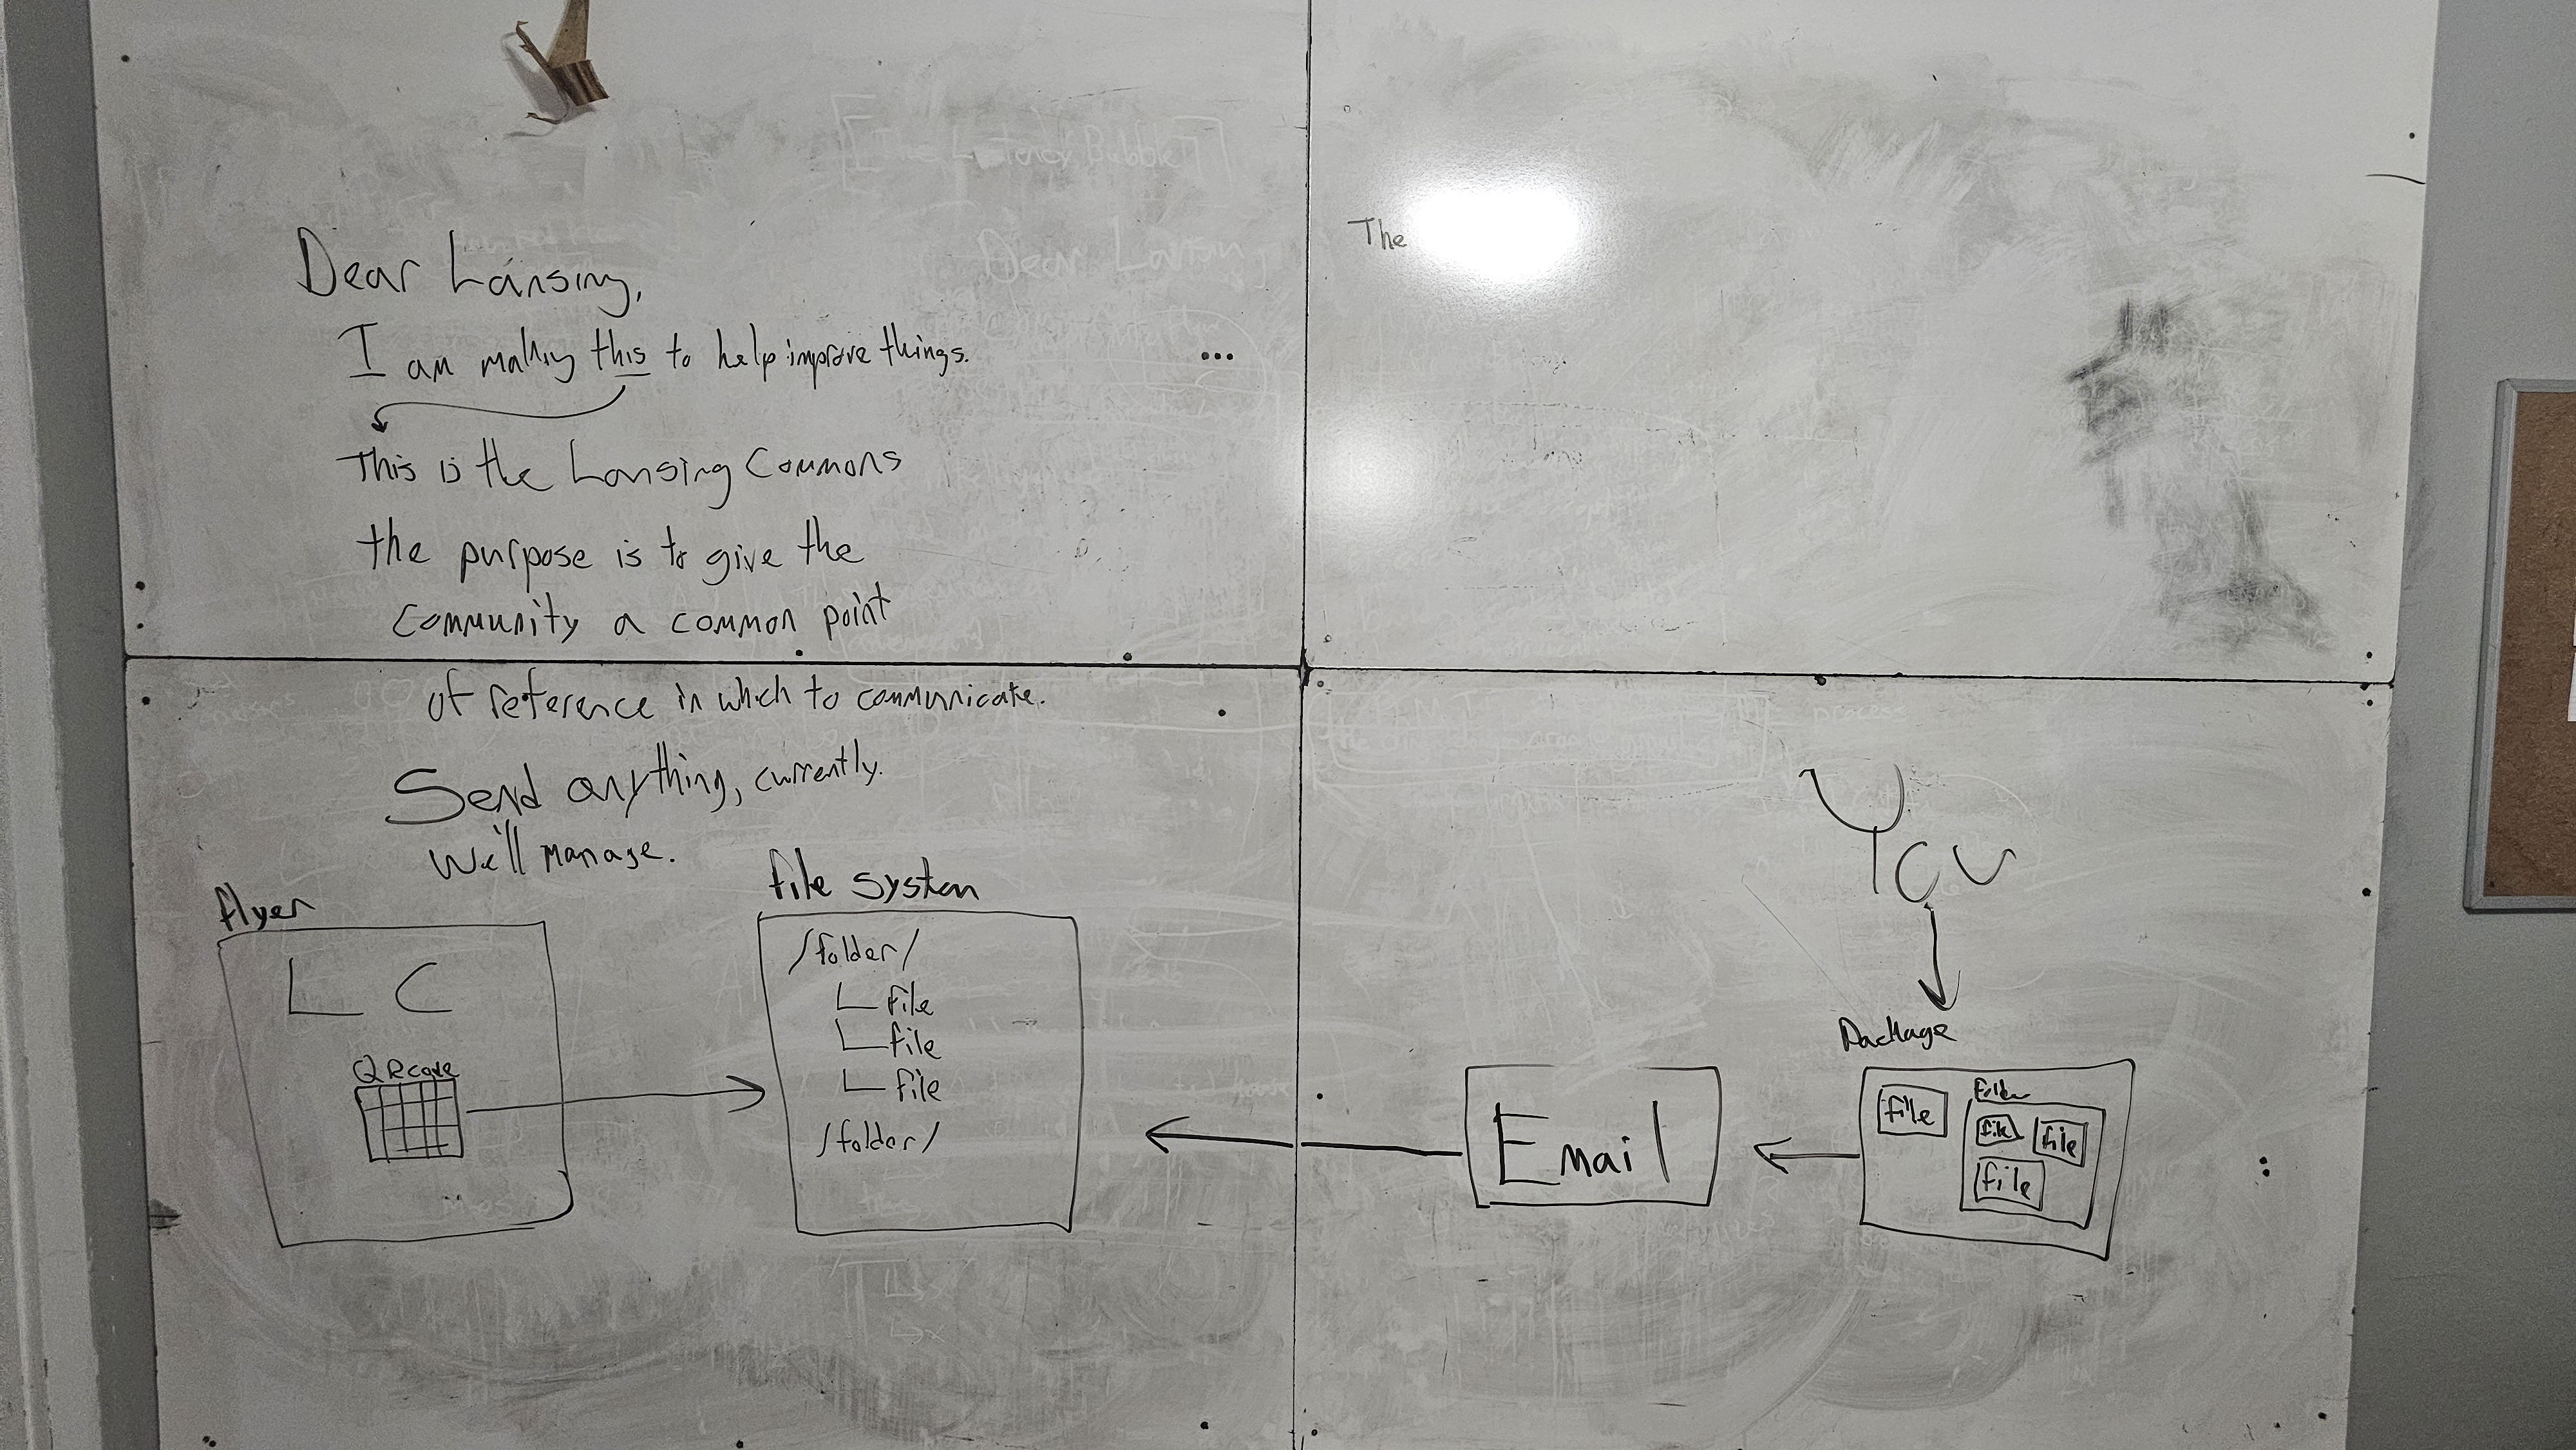 Dear Lansing,
I am making this to help improve things.
...
This is the Lansing Commons
the purpose is to give the
community a common point
of reference in which to communicate.
Send anything, currently.
We'll manage.
The
flyer
L C
QR code
file system
/folder/
file
file
file
/folder/
You
Package
file
folder
file
file
file
Email
[The Latency Bubble]
Dear Lansing,